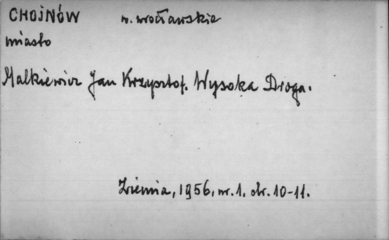 CHOJNÓW w. wrocławskie
miasto
Malkiewicz Jan Krzysztof. Wysoka Droga.
Ziemia, 1956, nr. 1, str. 10-11.